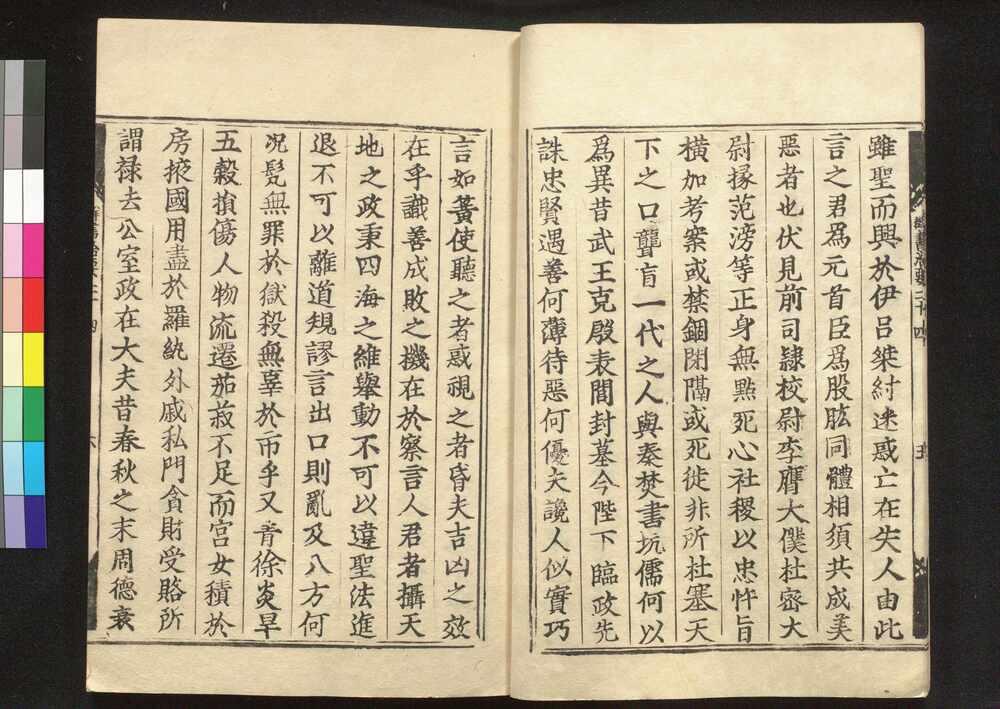 雖聖而興於伊呂桀紂迷惑亡在失人由此
言之君爲元首臣爲股肱同體相須共成美
惡者也伏見前司隸校尉李膺大僕杜密大
尉掾范滂等正身無點死心社稷以忠忤旨
橫加考案或禁錮閉隔或死徙非所杜塞天
下之口聾盲一代之人與秦焚書坑儒何以
爲異昔武王克殷表閭封墓今陛下臨政先
誅忠賢遇善何薄待惡何優夫讒人似實巧
言如簧使聽之者惑視之者昏夫吉凶之效
在乎識善成敗之機在於察言人君者攝天
地之政秉四海之維舉動不可以違聖法進
退不可以離道規謬言出口則亂及八方何
况髡無罪於獄殺無辜於市乎又青徐炎旱
五穀損傷人物流遷茹菽不足而宮女積於
房掖國用盡於羅紈外戚私門貪財受賂所
謂祿去公室政在大夫昔春秋之末周德衰